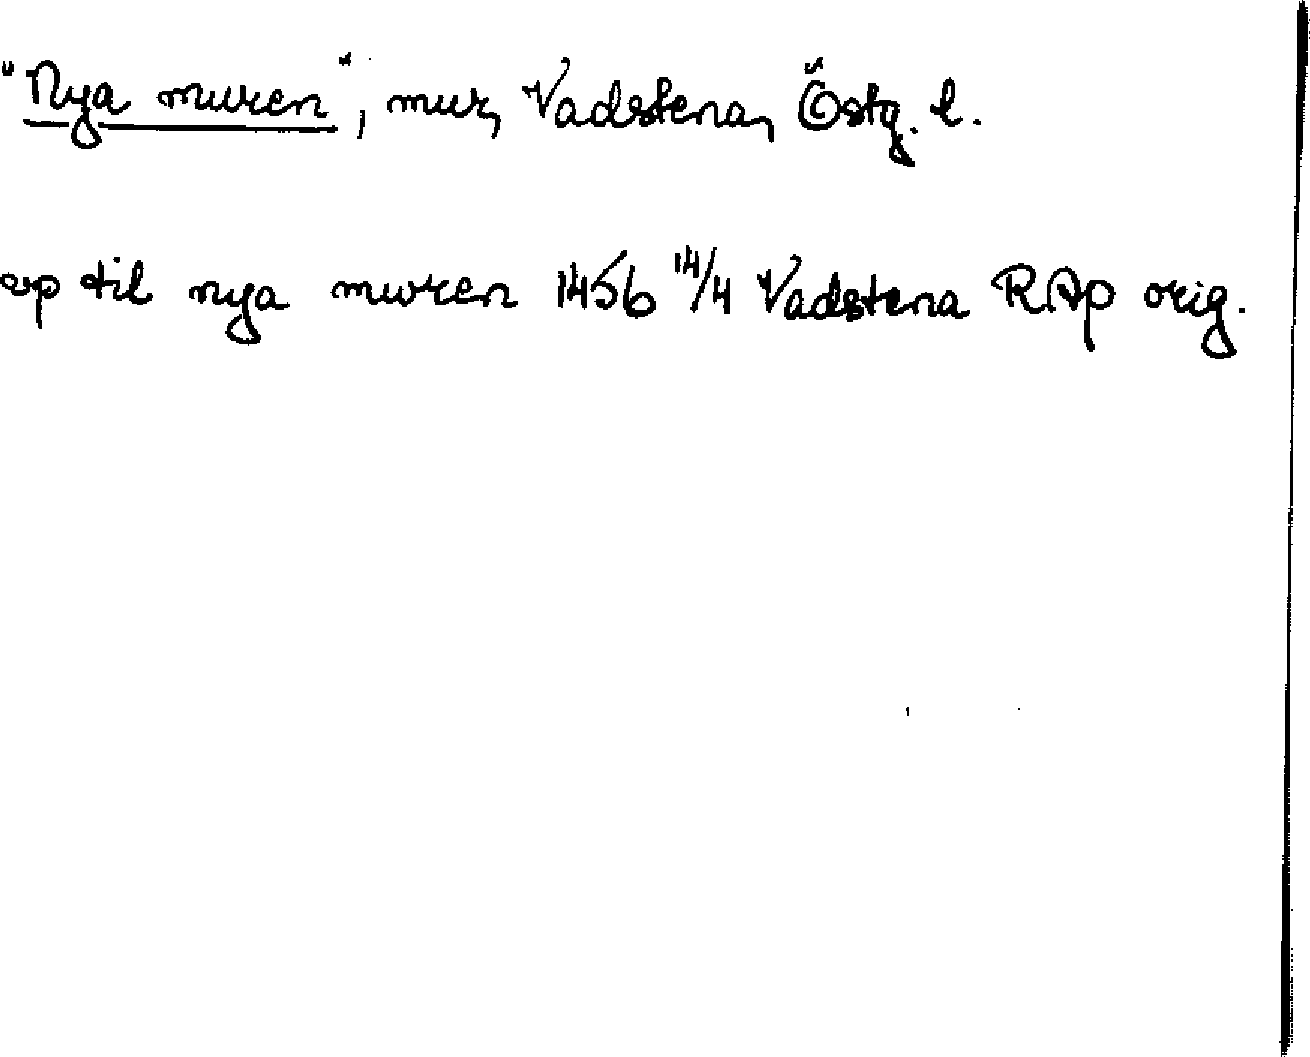 "Nya muren", mur, Vadstena, Östg. l.
op til nya muren 1456 14/4 Vadstena RAp orig.